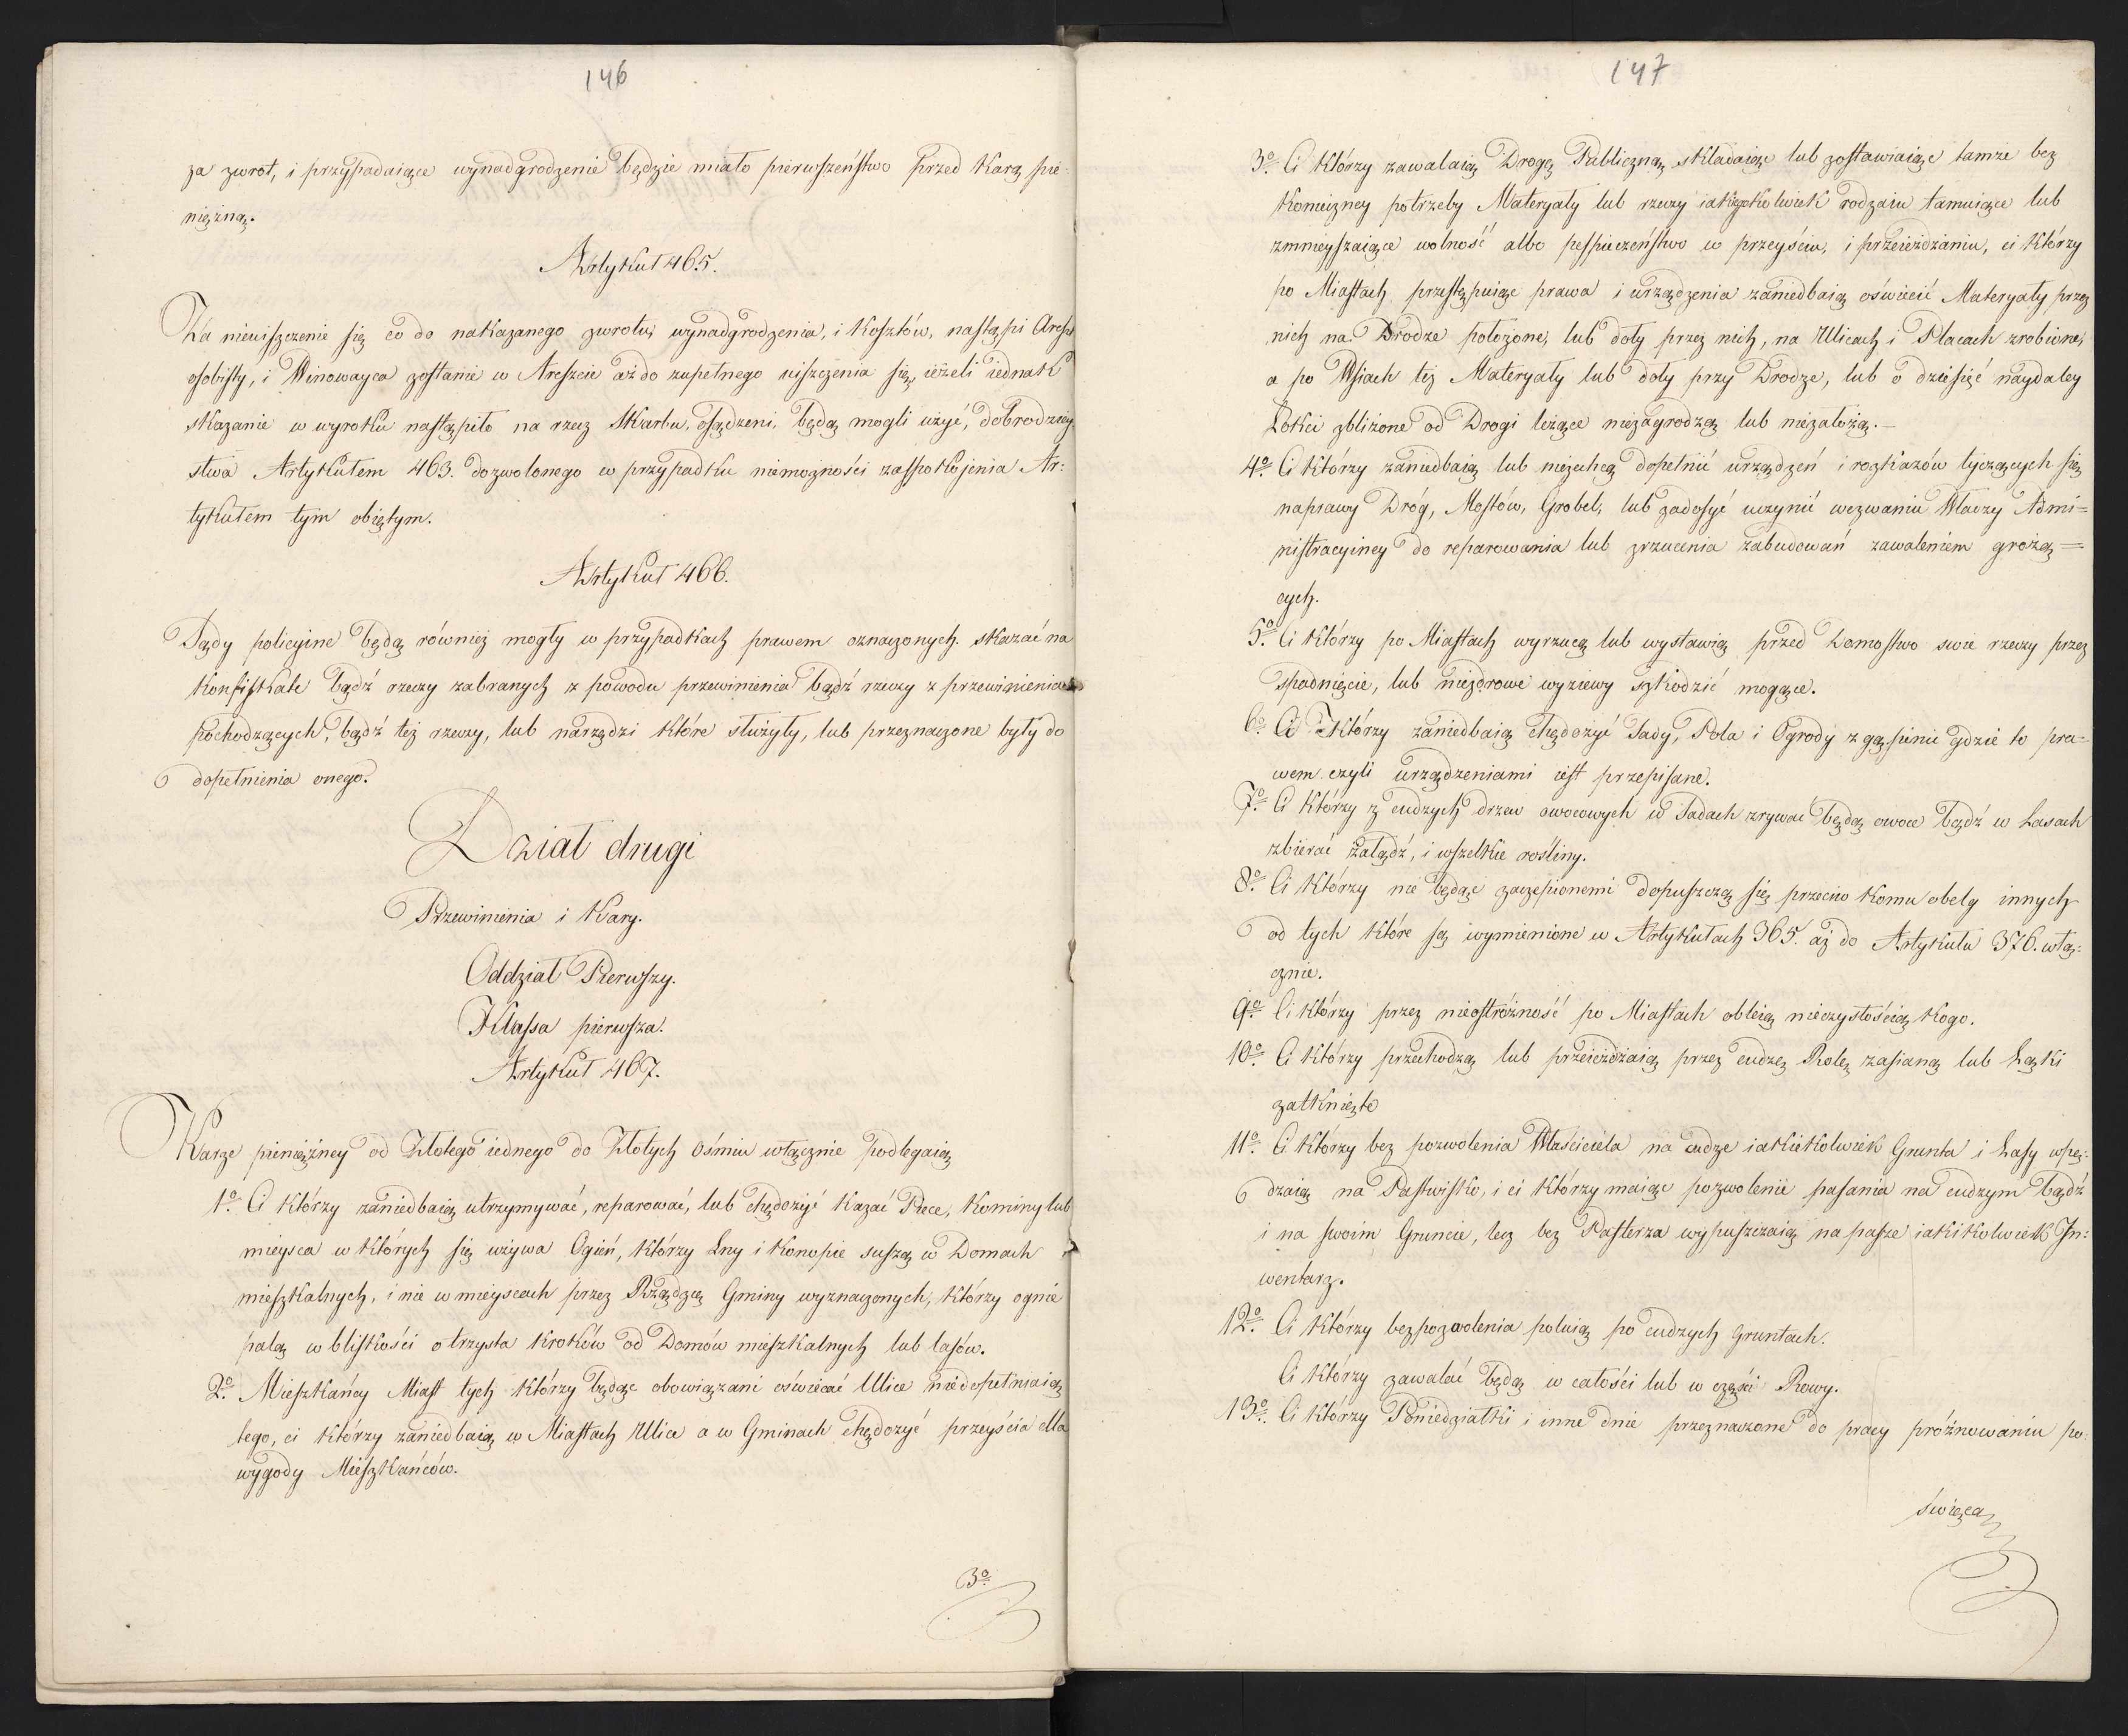 146
za zwrot, i przypadaiące wynadgrodzenie będzie miało pierwszeństwo przed Karą pie:
niężną.
Artykuł 465.
Za nieuiszczenie się co do nakazanego zwrotu, wynadgrodzenia, i Kosztów, nastąpi Areszt
osobisty, i Winowayca zostanie w Areszcie aż do zupełnego uiszczenia się, ieżeli iednak
skazanie w wyroku nastąpiło na rzecz Skarbu, osądzeni, będą mogli użyć, dobrodziey
stwa Artykułem 463. dozwolonego w przypadku niemożności zaspokojenia Ar:
tykułem tym obiętym.
Artykuł 466.
Sądy policyine będą również mogły w przypadkach prawem oznaczonych skazać na
Konfiskatę bądź rzeczy zabranych z powodu przewinienia bądź rzeczy z przewinienia
pochodzących, bądź też rzeczy, lub narzędzi które służyły, lub przeznaczone były do
dopełnienia onego.
Dział drugi
Przewinienia i Kary.
Oddział Pierwszy.
Klassa pierwsza.
Artykuł 467.
Karze pieniężney od Złotego iednego do Złotych ośmiu włącznie podlegaią
1º Ci Którzy zaniedbaią utrzymywać, reparować, lub chędożyć Kazać Piece, Kominy lub
mieysca w Których się używa Ogień, Którzy Lny i Konopie suszą w Domach
mieszkalnych, i nie w mieyscach przez Rządzcę Gminy wyznaczonych, Którzy ognie
palą w bliskości o trzysta kroków od Domów mieszkalnych lub lasów.
2º Mieszkańcy Miast tych Którzy będąc obowiązani oświecać Ulice niedopełniaią
tego, ci Którzy zaniedbaią w Miastach Ulice a w Gminach chędożyć przeyścia dla
wygody Mieszkańców.
3º
147
3º Ci Którzy zawalaią Drogę Publiczną składaiąc lub zostawiaiąc tamże bez
Konieczney potrzeby Materyały lub rzeczy iakiegokolwiek rodzaiu tamuiące lub
zmnieyszaiące wolność albo bespieczeństwo w przeyściu, i przeieżdżaniu, ci Którzy
po Miastach przestępuiąc prawa i urządzenia zaniedbaią oświecić Materyały przez
nich na Drodze położone, lub doły przez nich, na Ulicach i Placach zrobione,
a po Wsiach też Materyały lub doły przy Drodze, lub o dziesięć naydaley
Łokci zbliżone od Drogi leżące niezagrodzą lub niezałożą.
4º Ci Którzy zaniedbaią lub niezechcą dopełnić urządzeń i rozkazów tyczących się
naprawy Dróg, Mostów, Grobel, lub zadosyć uczynić wezwaniu Władzy Admi=
nistracyiney do reparowania lub zrzucenia zabudowań zawaleniem grożą=
cych.
5º Ci Którzy po Miastach wyrzucą lub wystawią przed Domostwo swe rzeczy przez
spadnięcie, lub niezdrowe wyziewy szkodzić mogące.
6º Ci Którzy zaniedbaią chędożyć Sady, Pola i Ogrody z gąsienic gdzie to pra=
wem czyli urządzeniami iest przepisane.
7º Ci Którzy z cudzych drzew owocowych w Sadach zrywać będą owoce bądź w Lasach
zbierać żołądź, i wszelkie rośliny.
8º Ci Którzy nie będąc zaczepionemi dopuszczą się przeciw Komu obelg innych
od tych Które są wymienione w Artykułach 365. aż do Artykułu 376. włą:
cznie.
9º Ci którzy przez nieostróżność po Miastach obleią nieczystością Kogo.
10º Ci Którzy przechodzą lub przeieżdżaią przez cudzą Rolę zasianą lub Łąki
zatknięte
11º Ci Którzy bez pozwolenia Właściciela na cudze iakiekolwiek Grunta i Lasy wpę:
dzaią na Pastwisko, i ci Którzy maiąc pozwolenie pasania na cudzym bądź
i na swoim Gruncie, lecz bez Pasterza wypuszczaią na paszę iakikolwiek In:
wentarz.
12º Ci Którzy bez pozwolenia poluią po cudzych Gruntach.
Ci Którzy zawalać będą w całości lub w części Rowy.
13º Ci Którzy Poniedziałki i inne dnie przeznaczone do pracy próżnowaniu po:
święcą